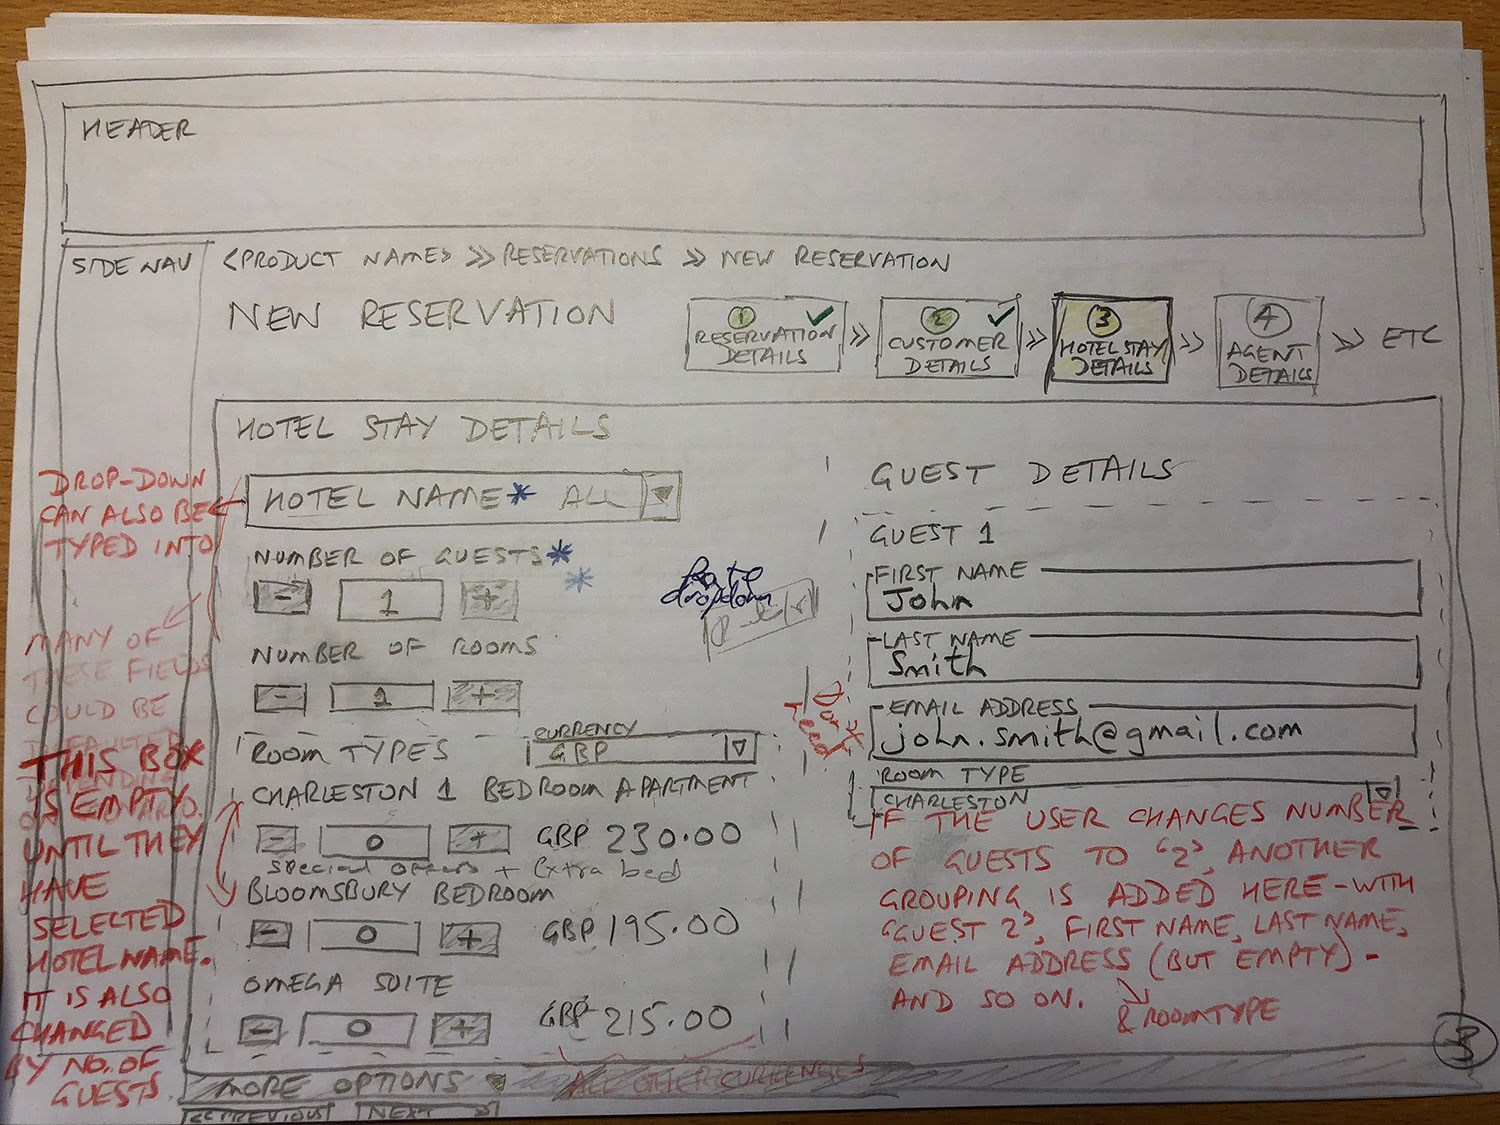 HEADER
SIDE NAV
<PRODUCT NAME> >> RESERVATIONS >> NEW RESERVATION
NEW RESERVATION
1 ✓
RESERVATION
DETAILS
>>
2 ✓
CUSTOMER
DETAILS
>>
3
HOTEL STAY
DETAILS
>>
4
AGENT
DETAILS
>> ETC
HOTEL STAY DETAILS
HOTEL NAME* ALL
NUMBER OF GUESTS*
*
- 1 +
NUMBER OF ROOMS
- 1 +
ROOM TYPES
CURRENCY
GBP
CHARLESTON 1 BEDROOM APARTMENT
- 0 + GBP 230.00
Special offers + Extra bed
BLOOMSBURY BEDROOM
- 0 + GBP 195.00
OMEGA SUITE
- 0 + GBP 215.00
MORE OPTIONS
ALL OTHER CURRENCIES
<< PREVIOUS
NEXT >>
dropdown
GUEST DETAILS
GUEST 1
FIRST NAME
John
LAST NAME
Smith
EMAIL ADDRESS
john.smith@gmail.com
ROOM TYPE
CHARLESTON
Don't
need
*
IF THE USER CHANGES NUMBER
OF GUESTS TO '2', ANOTHER
GROUPING IS ADDED HERE - WITH
'GUEST 2', FIRST NAME, LAST NAME,
EMAIL ADDRESS (BUT EMPTY) -
AND SO ON.
& ROOM TYPE
3
DROP-DOWN
CAN ALSO BE
TYPED INTO
MANY OF
THESE FIELDS
COULD BE
DEFAULTED
DEPENDING
THIS BOX
IS EMPTY
UNTIL THEY
HAVE
SELECTED
HOTEL NAME.
IT IS ALSO
CHANGED
BY NO. OF
GUESTS.